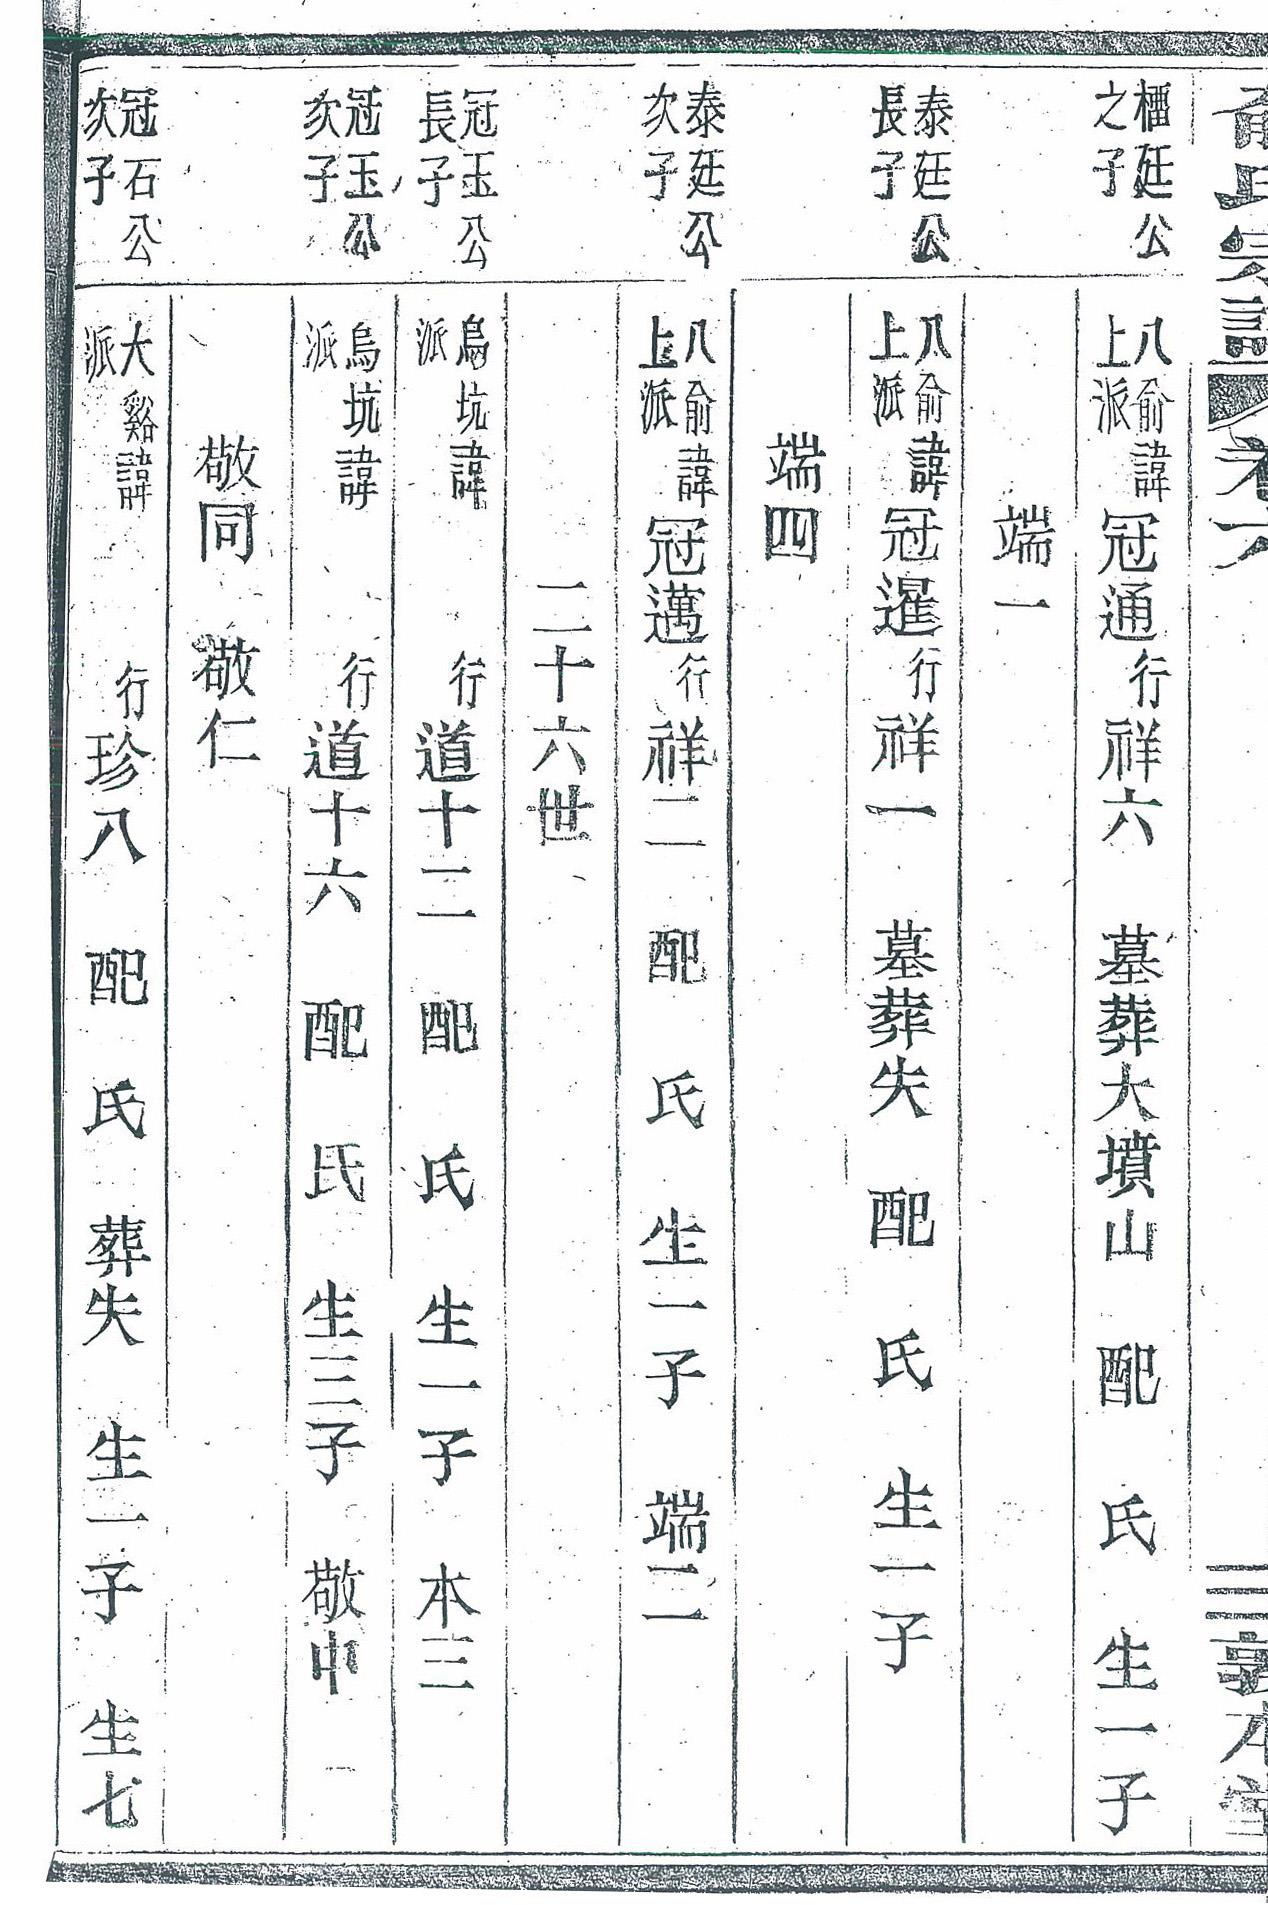 俞氏宗譜 卷六 三 敦本堂
櫑廷公之子 八俞上派 諱冠通 行祥六 墓葬大墳山 配 氏 生一子
端一
泰廷公長子 八俞上派 諱冠暹 行祥一 墓葬失 配 氏 生一子
端四
泰廷公次子 八俞上派 諱冠邁 行祥二 配 氏 生一子 端二
二十六世
冠玉公長子 烏坑派 諱 行道十二 配 氏 生一子 本三
冠玉公次子 烏坑派 諱 行道十六 配 氏 生三子 敬中
敬同 敬仁
冠石公次子 大谿派 諱 行珍八 配 氏 葬失 生一子 生七